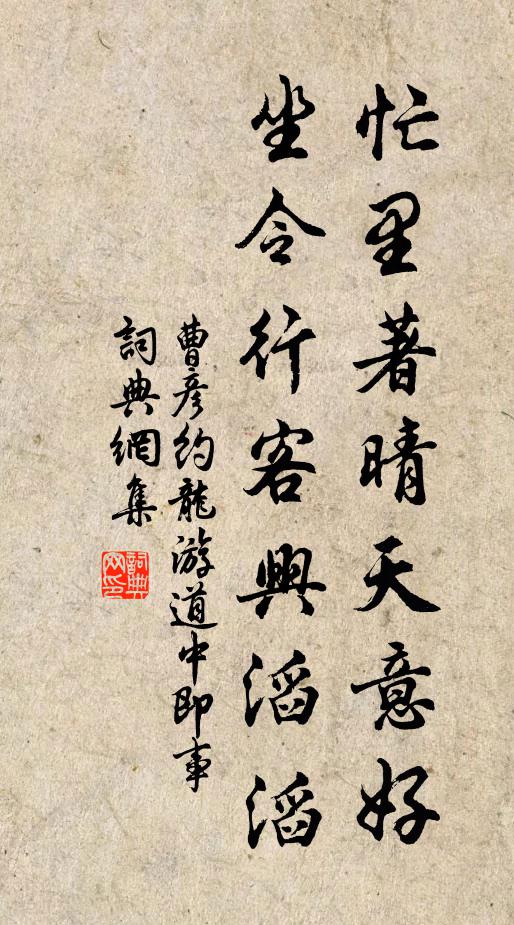 忙里著晴天意好
坐令行客興滔滔
曹彦約龍游道中即事
詞典網集
詞典網印